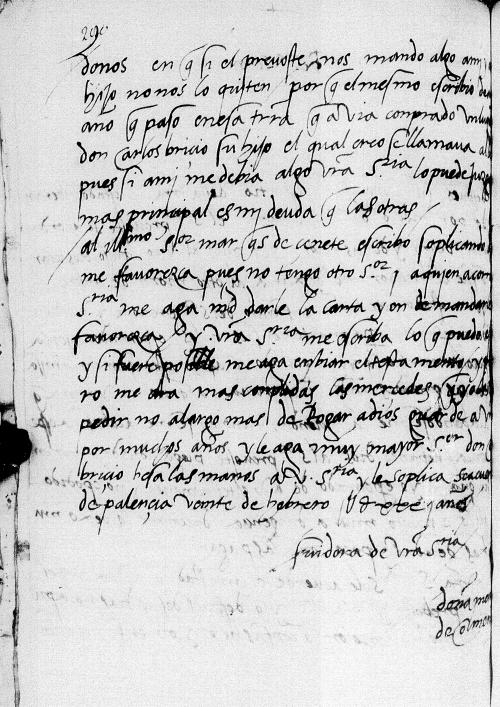 290
donos en q si el prevoste nos mando algo a mi y
hijo no nos lo quiten por q el mesmo escribio
ano q paso en esa trra q avia conprado un
don carlos bricio su hijo el qual creo se llamava al
pues si a mi me debia algo vra sria lo puede juzg
mas principal es mi deuda q las otras
al illmo sor marqs de cenete escribo soplicando
me favorezca pues no tengo otro sor i a quien acor
sria me aga md darle la carta y on de mandar
favorezca y vra sria me escriba lo q puedo e
y si fuere posible me aga enbiar el testamento y
ro me ara mas conplidas las mercedes
pedir no alargo mas de rogar a dios guarde a v
por muchos años y le aga muy mayor sor don
bricio besa las manos a v sria y le soplica
de palençia veinte de hebrero anos
servidora de vra sria
doña
de